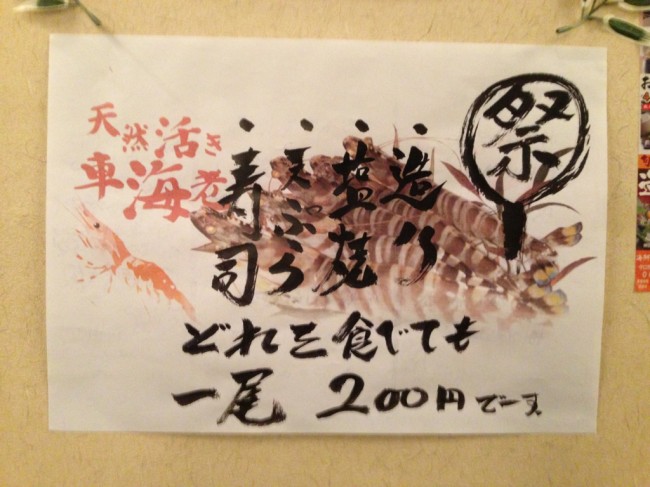 天然活き
車海老
祭
・造り
・塩焼
・天ぷら
・寿司
どれを食べても
一尾 200円でーす。